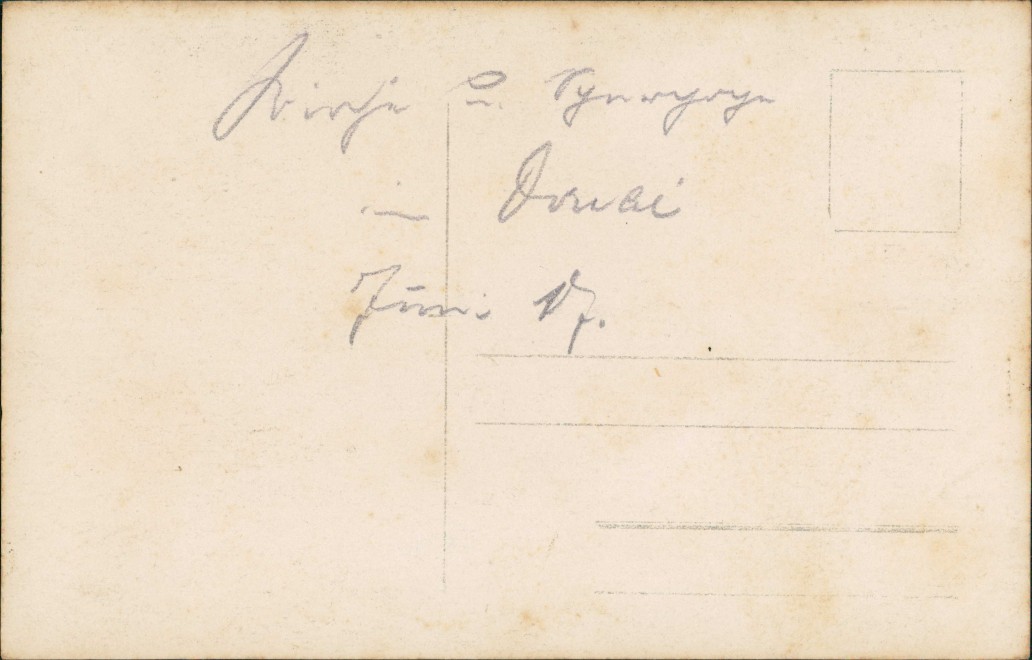 Kirche u. Synagoge
in Douai
Juni 17.